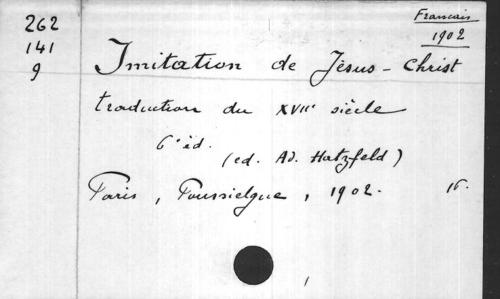 262
141
9
Francais
1902
Imitation de Jésus-Christ
traduction du XVIIe siècle
6e éd.
(ed. Ad. Hatzfeld)
Paris, Poussielgue, 1902. 16.